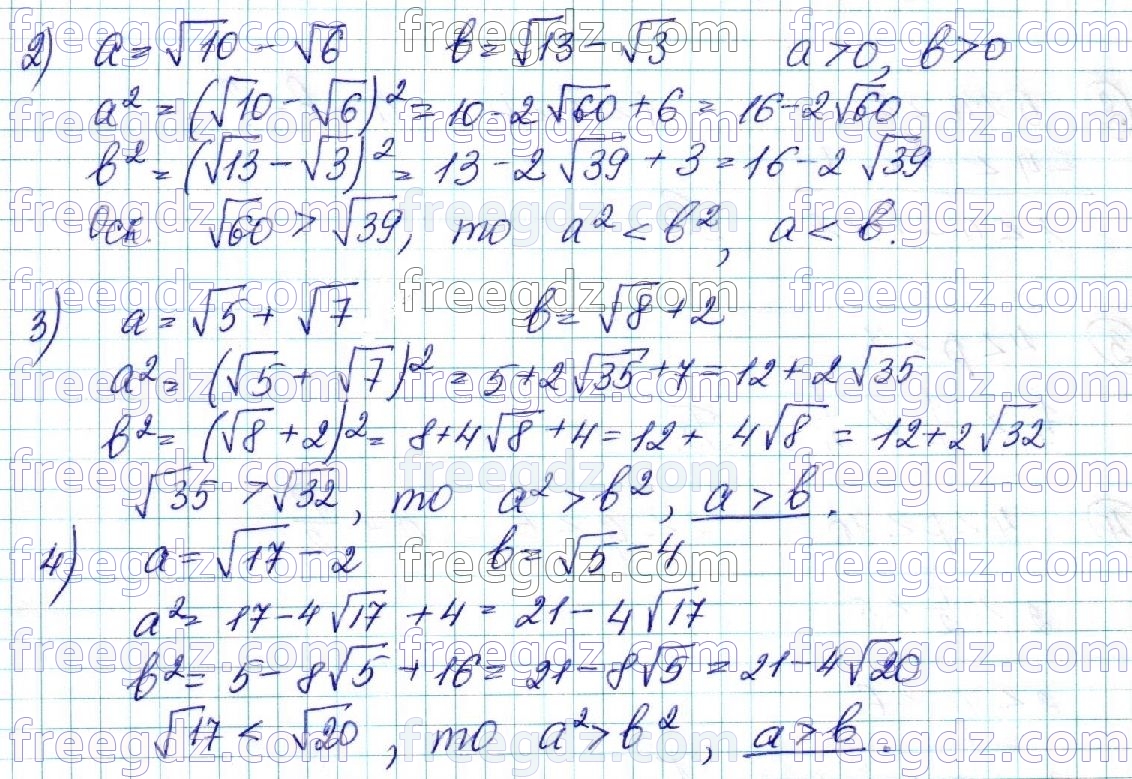 2) a = √10 - √6   b = √13 - √3   a > 0, b > 0
a² = (√10 - √6)² = 10 - 2√60 + 6 = 16 - 2√60
b² = (√13 - √3)² = 13 - 2√39 + 3 = 16 - 2√39
Оск. √60 > √39, то a² < b², a < b.
3) a = √5 + √7   b = √8 + 2
a² = (√5 + √7)² = 5 + 2√35 + 7 = 12 + 2√35
b² = (√8 + 2)² = 8 + 4√8 + 4 = 12 + 4√8 = 12 + 2√32
√35 > √32, то a² > b², a > b.
4) a = √17 - 2   b = √5 - 4
a² = 17 - 4√17 + 4 = 21 - 4√17
b² = 5 - 8√5 + 16 = 21 - 8√5 = 21 - 4√20
√17 < √20, то a² > b², a > b.
freegdz.com